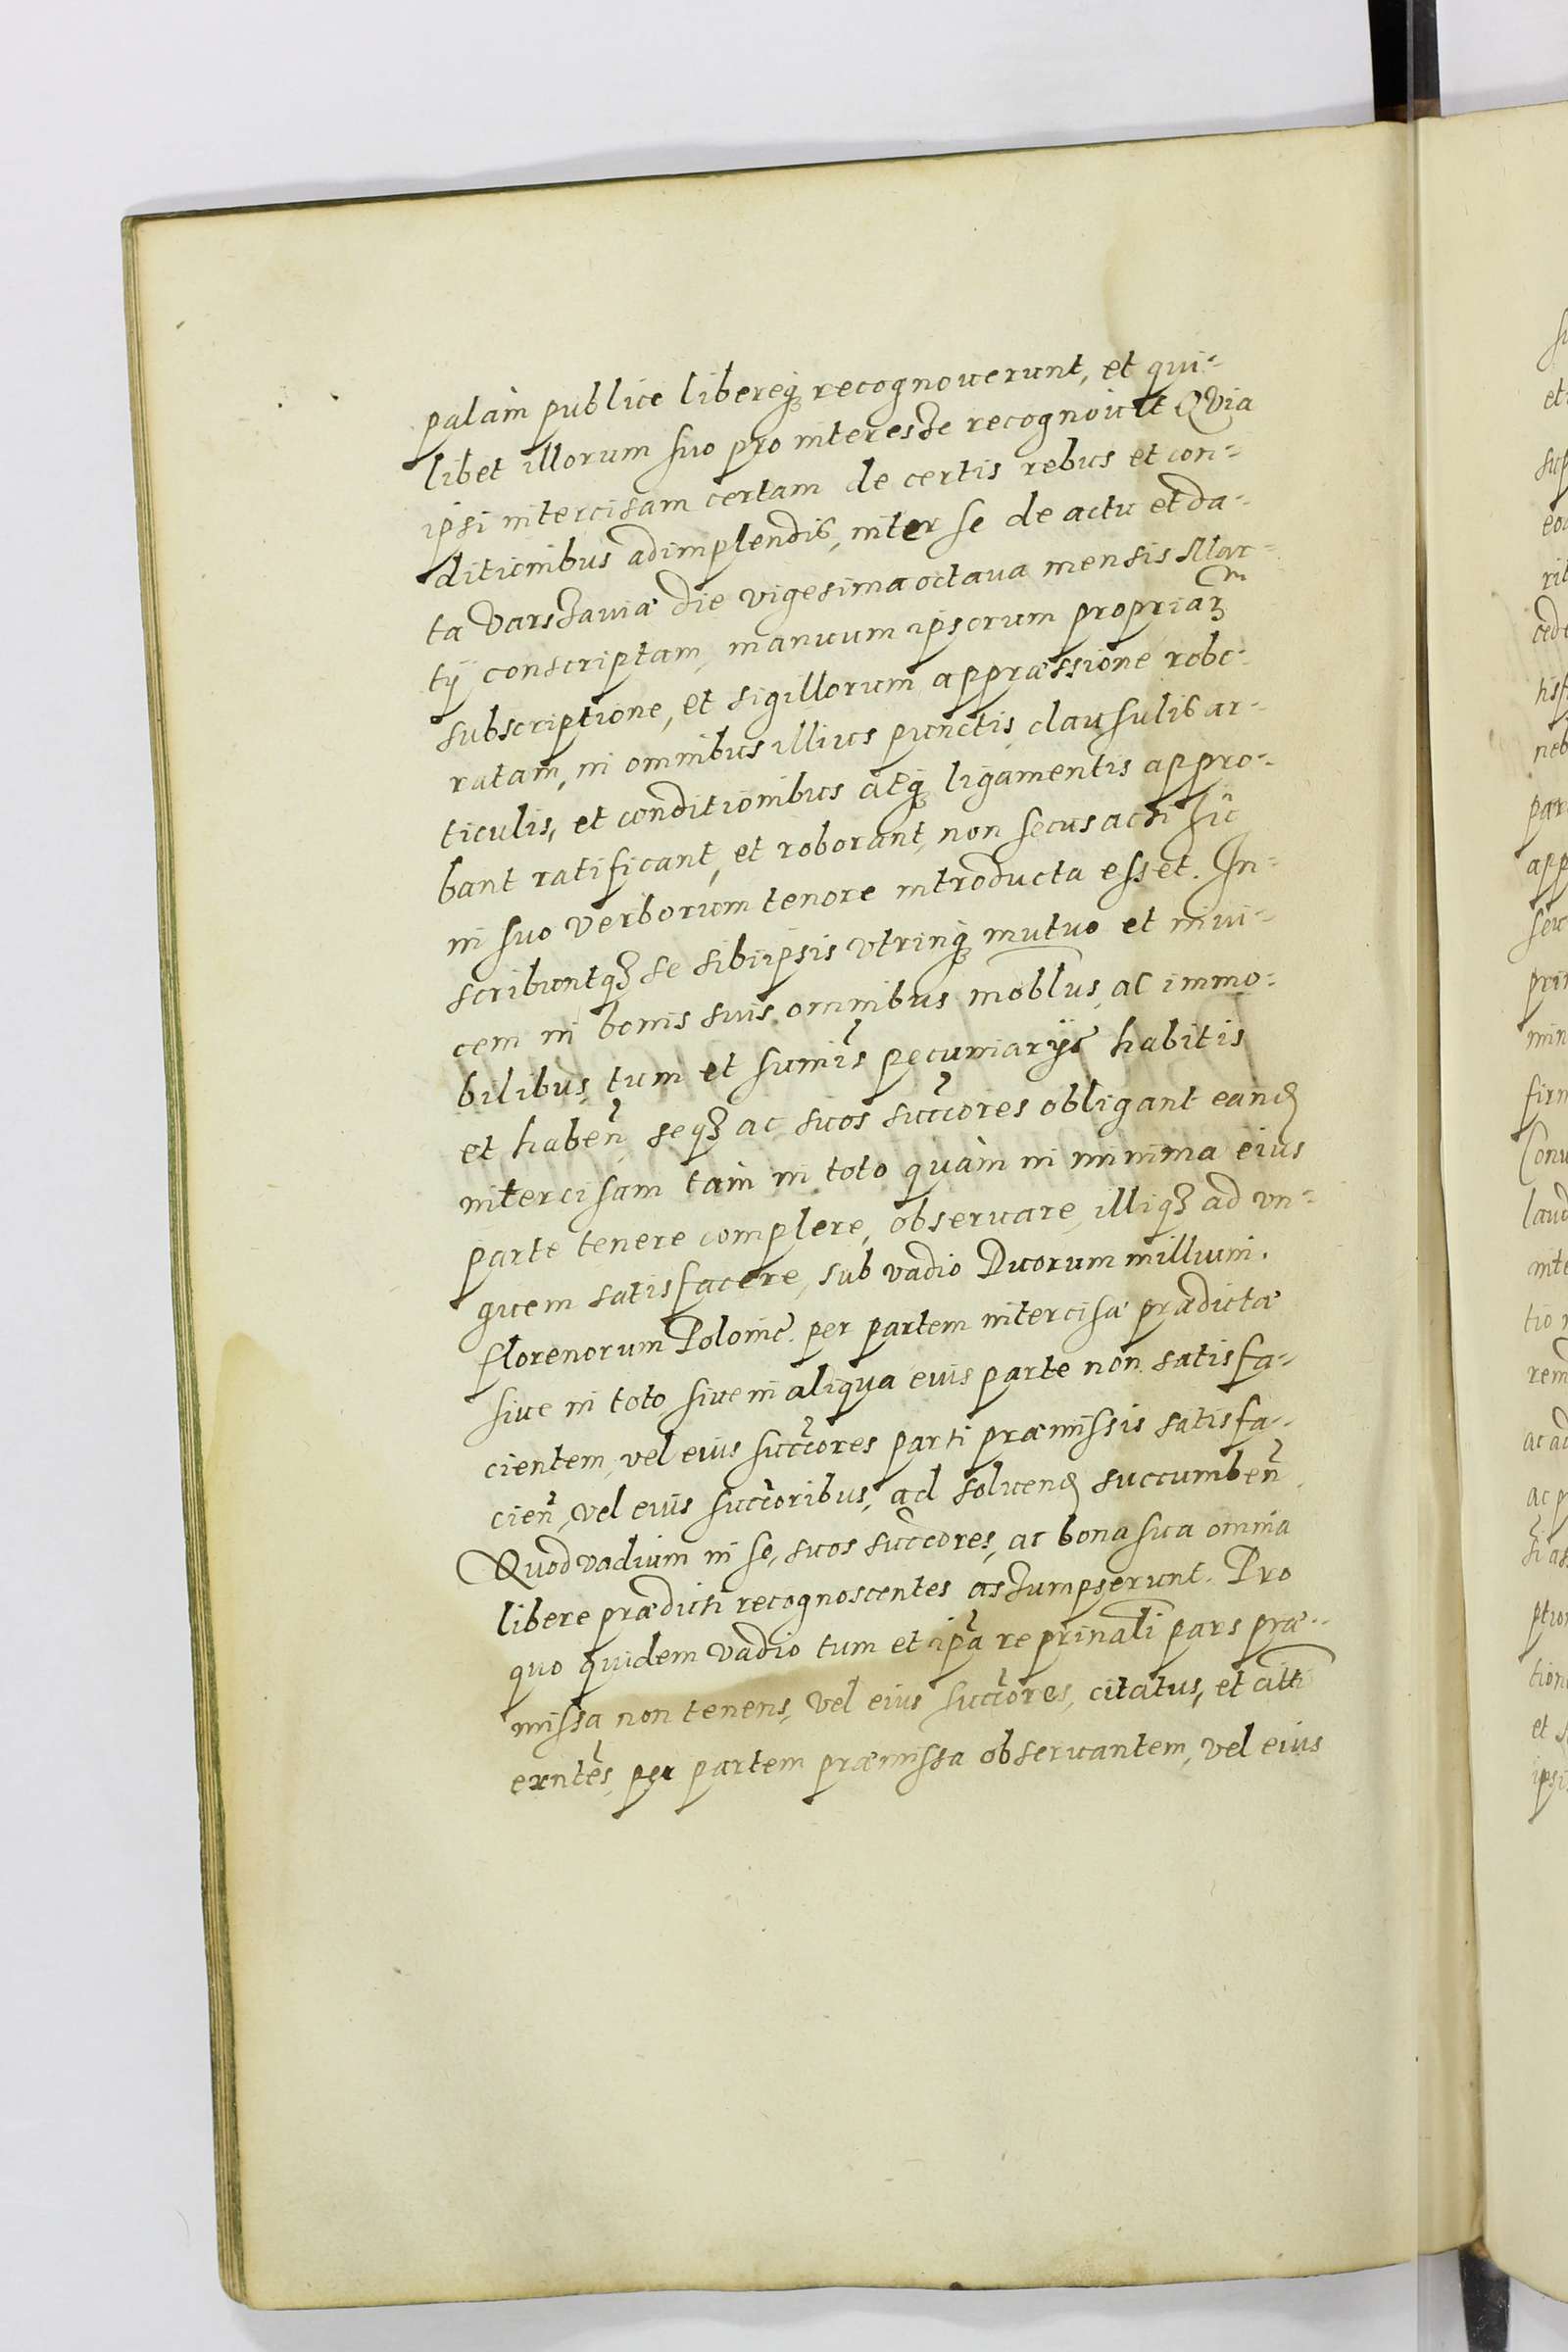 palàm publice libereq3 recognouerunt, et qui-
libet illorum suo pro interesse recognouit Qvia
ipsi intercisam certam de certis rebus et con-
ditionibus adimplendis, inter se de actu et da-
ta Varssauiæ die vigesima octaua mensis Mar-
tÿ conscriptam, manuum ipsorum propriar3
subscriptione, et sigillorum appræssione robo-
ratam, in omnibus illius punctis, clausulis ar-
ticulis, et conditionibus atq3 ligamentis appro-
bant ratificant, et roborant, non secus ac si hic
in suo verborum tenore introducta esset. In-
scribuntq3 se sibiipsis vtrinq3 mutuo et inui-
cem in bonis suis omnibus moblus, ac immo-
bilibus, tum et sumis pecuniarÿs habitis
et haben, seq3 ac suos succores obligant eand
intercisam tàm in toto quàm in minima eius
parte tenere complere, obseruare, illiq3 ad vn-
guem satisfacere, sub vadio Duorum millium
florenorum Polonic. per partem intercisæ prædictæ
siue in toto, siue in aliqua euis parte non satisfa-
cientem, vel eius succores parti præmissis satisfa-
cien, vel euis succoribus, ad soluend succumben
Quod vadium in se, suos succores, ac bona sua omnia
libere prædicti recognoscentes assumpserunt. Pro
quo quidem vadio tum et ipa re prinali pars præ-
missa non tenens, vel eius succores, citatus, et citti
exntes, per partem præmissa obseruantem, vel eius